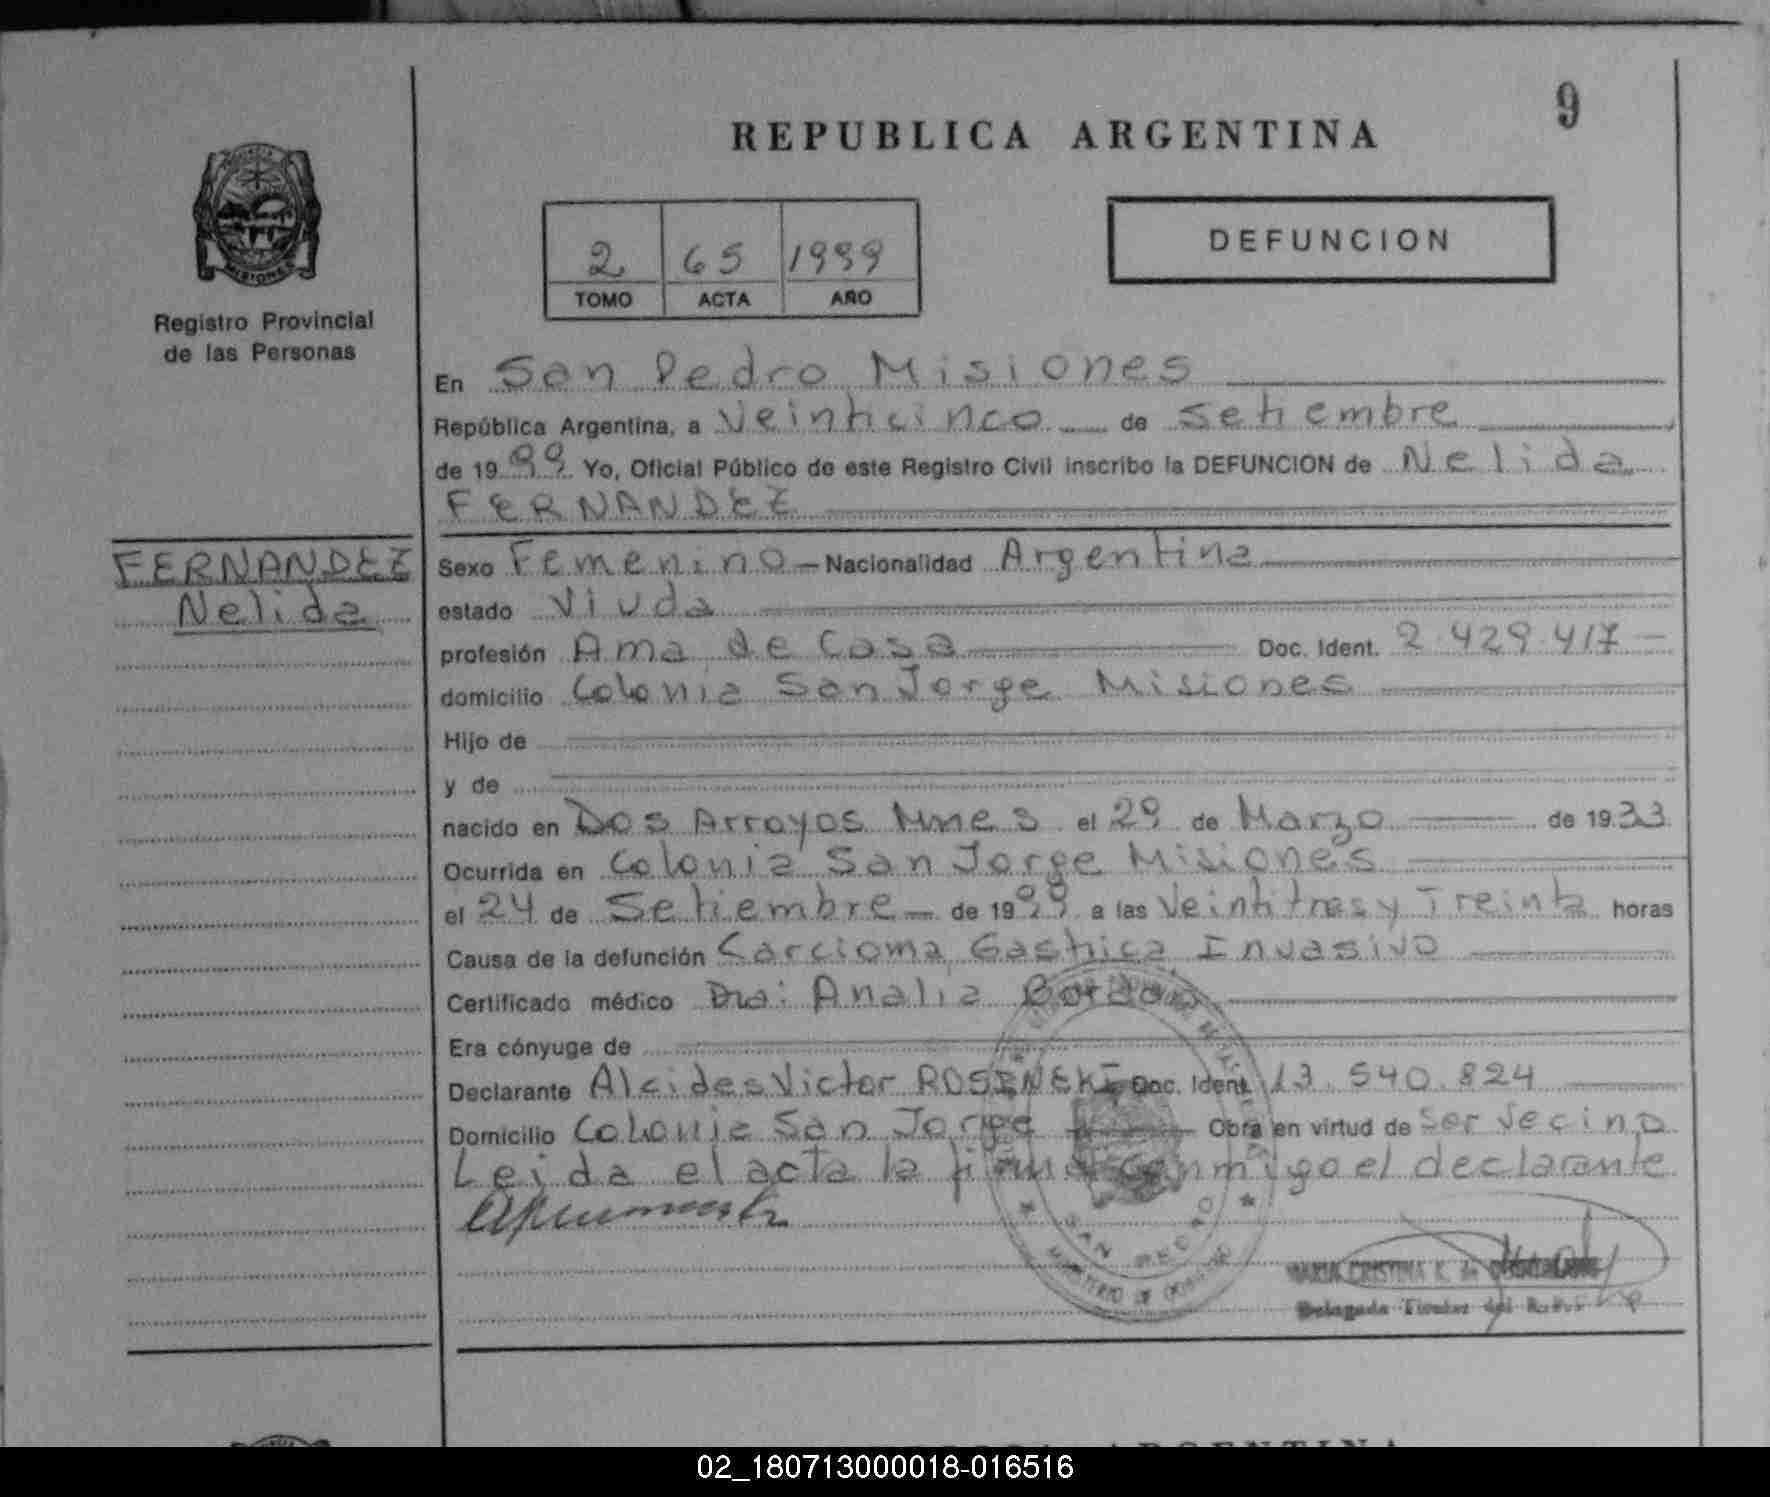 9
REPUBLICA ARGENTINA
MISIONES
Registro Provincial
de las Personas
2 65 1999
TOMO ACTA AÑO
DEFUNCION
En San Pedro Misiones
República Argentina, a Veinticinco de Setiembre
de 1999 Yo, Oficial Público de este Registro Civil inscribo la DEFUNCION de Nelida
FERNANDEZ
FERNANDEZ
Nelida
Sexo Femenino Nacionalidad Argentina
estado Viuda
profesión Ama de Casa Doc. Ident. 2.429.417
domicilio Colonia San Jorge Misiones
Hijo de
y de
nacido en Dos Arroyos Mnes el 29 de Marzo de 1933
Ocurrida en Colonia San Jorge Misiones
el 24 de Setiembre de 1999 a las Veintitres y Treinta horas
Causa de la defunción Carcioma Gastrica Invasivo
Certificado médico Dra: Analia
Era cónyuge de
Declarante Alcides Victor ROSINSKI Doc. Ident. 13.540.824
Domicilio Colonia San Jorge Obra en virtud de Ser Vecino
Leida el acta la firma conmigo el declarante
SAN PEDRO
MINISTERIO DE GOBIERNO
MARIA CRISTINA K. de
Delegada Titular del R.P.
REPUBLICA ARGENTINA
02_180713000018-016516